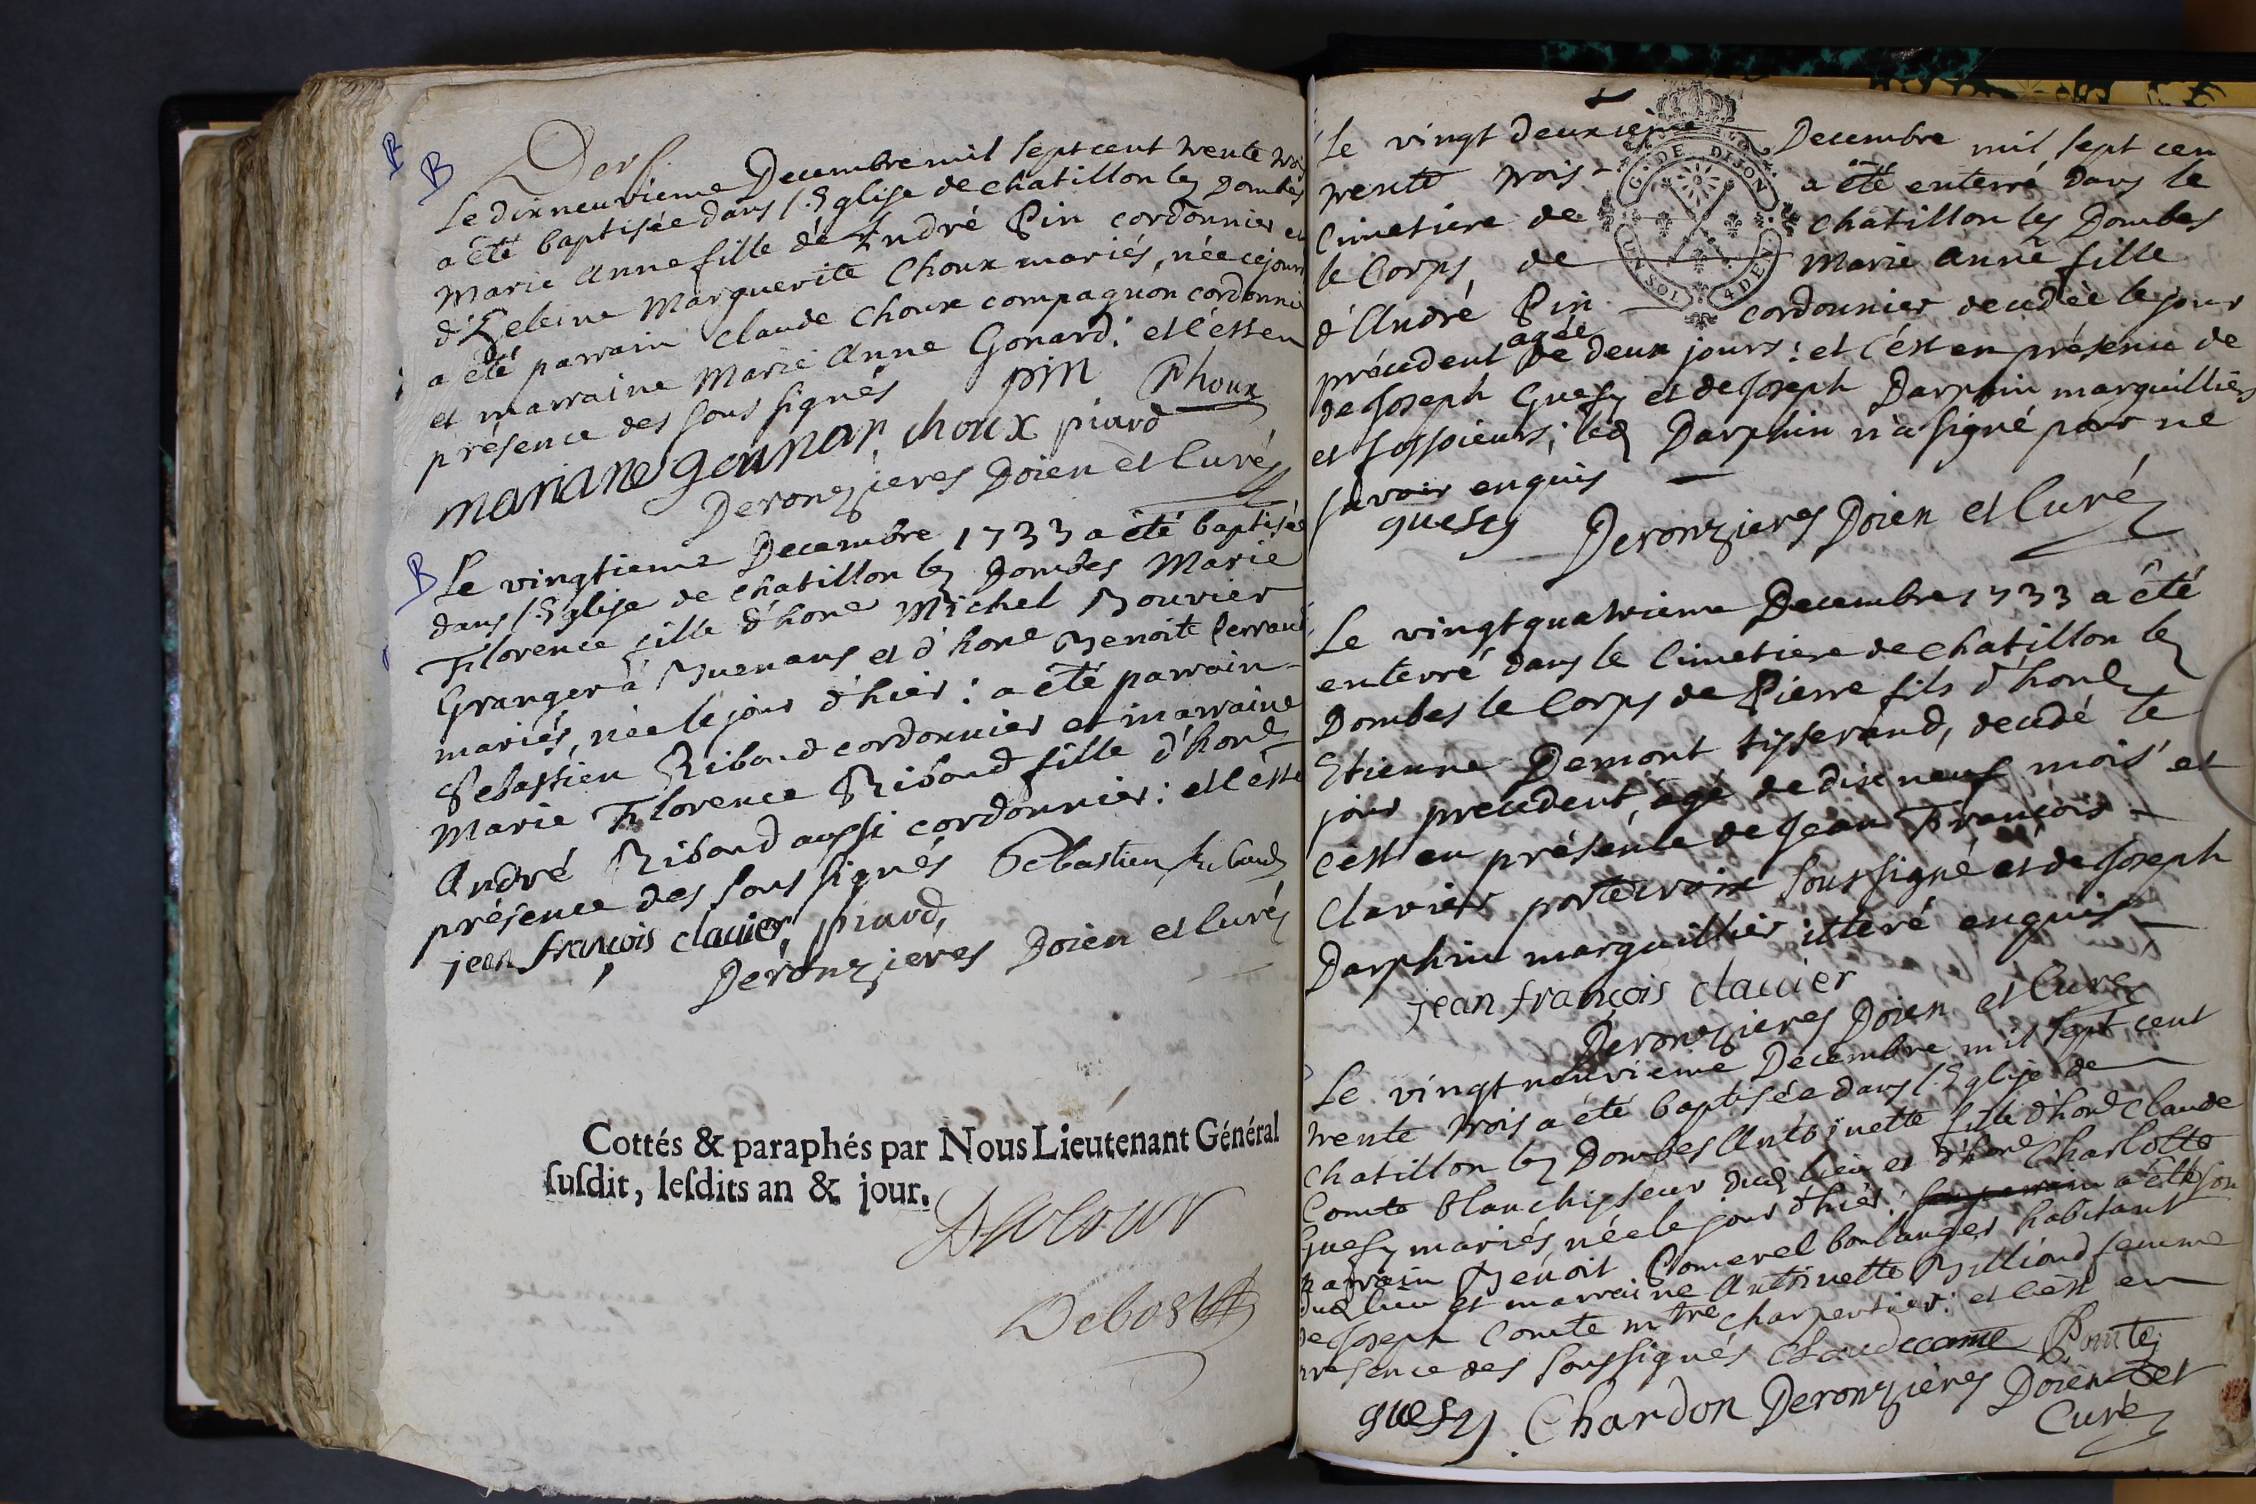 B
B
Le dix neuvieme Decembre mil sept cent trente trois
a été baptisée dans l'Eglise de chatillon les Dombes
Marie Anne fille de André Pin cordonnier et
d'Heleine Marguerite Choux mariés, née ce jour
a été parrain Claude Choux compagnon cordonnier
et marraine Marie Anne Gonard: et c'est en
présence des sous signés pin Choux
mariane gounar, choux piard
Deronzieres Doien et Curé
B
Le vingtieme Decembre 1733 a été baptisée
dans l'Eglise de chatillon les Dombes Marie
Florence fille d'hone Michel Bouvier
Granger à Buenans et d'hone Benoite Perraud
mariés, née le jour d'hier: a été parrain
Sebastien Riboud cordonnier et marraine
Marie Florence Riboud fille d'hone
André Riboud aussi cordonnier: et c'est en
présence des sous signés Sebastien Riboud
jean françois clavier, piard,
Deronzieres Doien et Curé
Cottés & paraphés par Nous Lieutenant Général
ſuſdit, leſdits an & jour.
Debost
G. DE DIJON
UN SOL 4 DE.
Le vingt deuxieme Decembre mil sept cen
trente trois a été enterré dans le
Cimetiere de chatillon les Dombes
le Corps de Marie Anne fille
d'André Pin cordonnier decedée le jour
précedent agée de deux jours: et c'est en présence de
de Joseph Guesy et de Joseph Darphin marguilliers
et fossoieurs; led Darphin n'a signé pour ne
savoir enquis
guesy Deronzieres Doien et Curé
Le vingt quatrieme Decembre 1733 a été
enterré dans le Cimetiere de chatillon les
Dombes le Corps de Pierre fils d'hone
Etienne Demont tisserand, decedé le
jour precedent, agé de dix neuf mois et
c'est en présence de Jean François
Clavier portecroix soussigné et de Joseph
Darphin marguillier itteré enquis
jean françois clavier
Deronzieres Doien et Curé
Le vingt neuvieme Decembre mil sept cent
trente trois a été baptisée dans l'Eglise de
Chatillon les Dombes Antoinette fille d'hone Claude
Comte Blanchisseur dud lieu et d'hone Charlotte
Guesy mariés, née le jour d'hier: a été son
parrain Benoit Pomerel boulanger habitant
dud lieu et marraine Antoinette Billioud femme
de Joseph Comte mtre charpentier: et c'est en
presence des soussignés Claude comte Comte
guesy. Chardon Deronzières Doien et
Curé